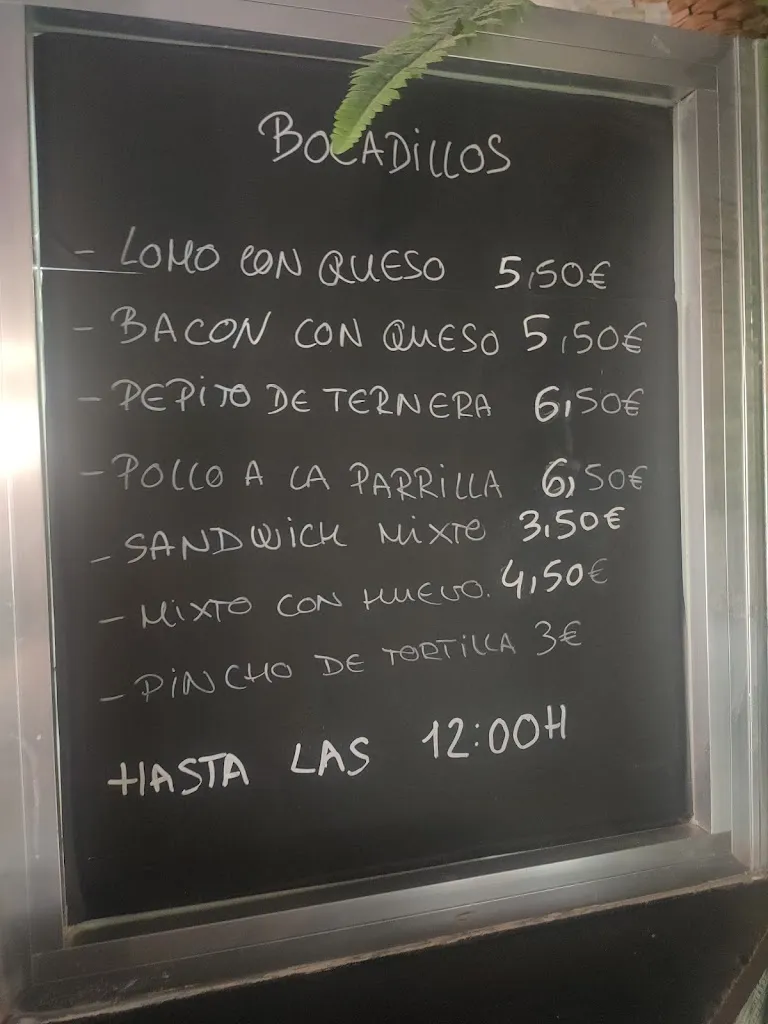 BOCADILLOS
- LOMO CON QUESO 5,50€
- BACON CON QUESO 5,50€
- PEPITO DE TERNERA 6,50€
- POLLO A LA PARRILLA 6,50€
- SANDWICH MIXTO 3,50€
- MIXTO CON HUEVO. 4,50€
- PINCHO DE TORTILLA 3€
HASTA LAS 12:00H